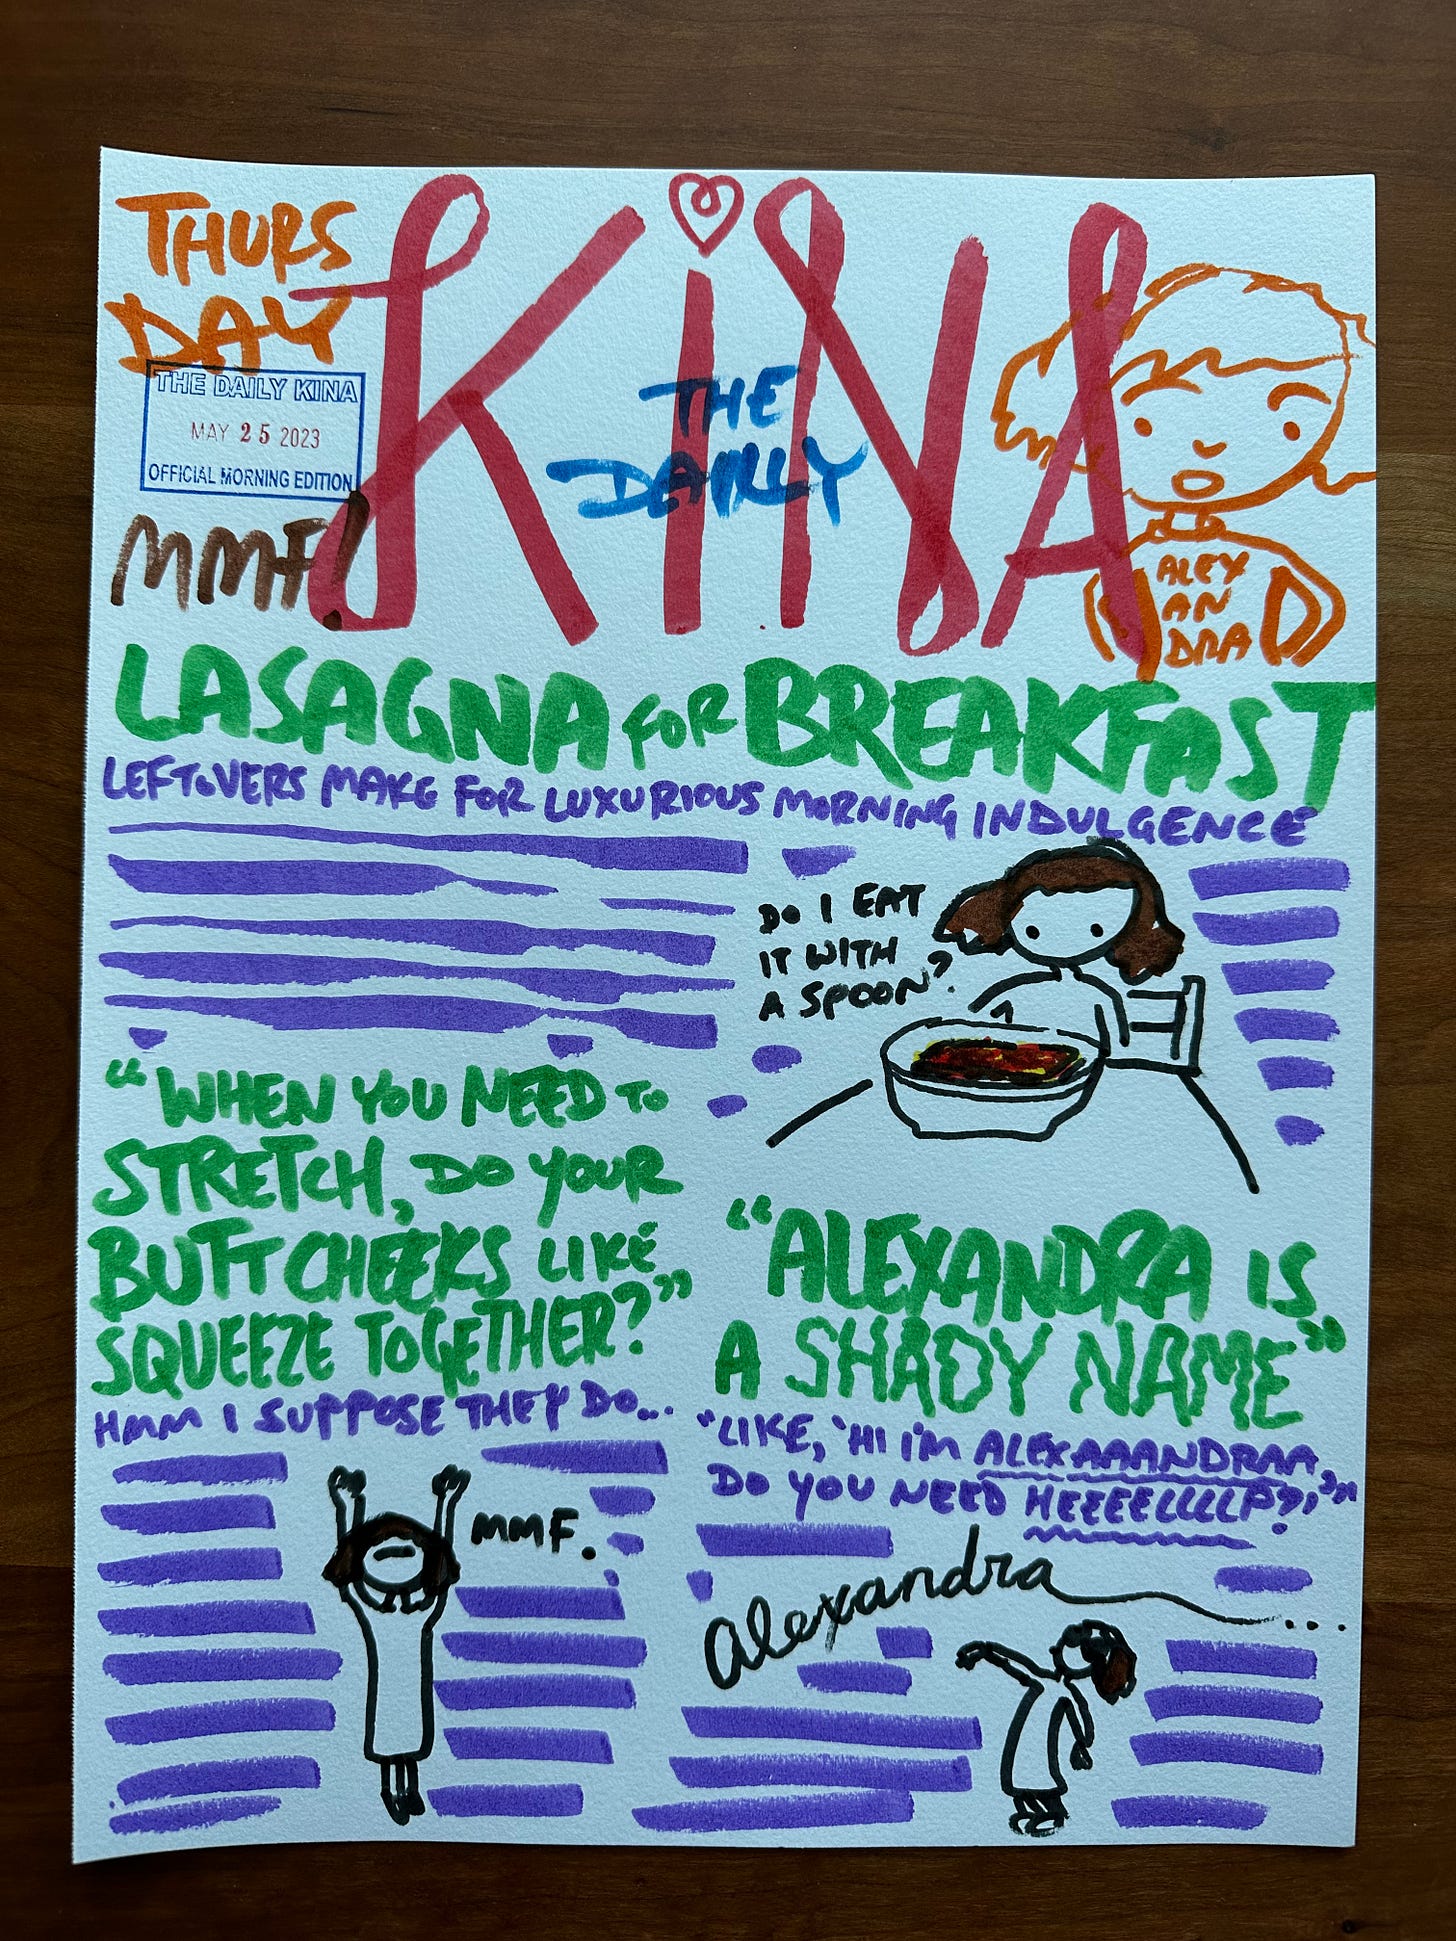 THURS
DAY
THE DAILY KINA
MAY 25 2023
OFFICIAL MORNING EDITION
MMF!
KiNA
THE
DAILY
ALEX
AN
DRA
LASAGNA FOR BREAKFAST
LEFTOVERS MAKE FOR LUXURIOUS MORNING INDULGENCE
DO I EAT
IT WITH
A SPOON?
"WHEN YOU NEED TO
STRETCH, DO YOUR
BUTT CHEEKS LIKE
SQUEEZE TOGETHER?"
HMM I SUPPOSE THEY DO...
MMF.
"ALEXANDRA IS
A SHADY NAME"
"LIKE, 'HI I'M ALEXAAAANDRAA,
DO YOU NEED HEEEELLLLP?,'"
Alexandra...